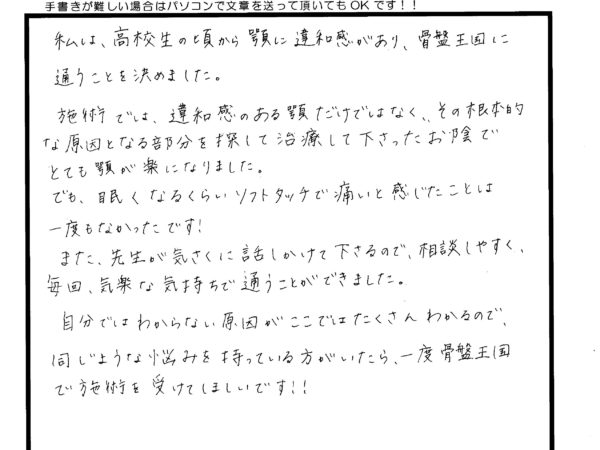 手書きが難しい場合はパソコンで文章を送って頂いてもOKです！！
私は、高校生の頃から顎に違和感があり、骨盤王国に
通うことを決めました。
施術では、違和感のある顎だけではなく、その根本的
な原因となる部分を探して治療して下さったお陰で
とても顎が楽になりました。
でも、眠くなるくらいソフトタッチで痛いと感じたことは
一度もなかったです!
また、先生が気さくに話しかけて下さるので、相談しやすく、
毎回、気楽な気持ちで通うことができました。
自分ではわからない原因がここではたくさんわかるので、
同じような悩みを持っている方がいたら、一度骨盤王国
で施術を受けてほしいです!!